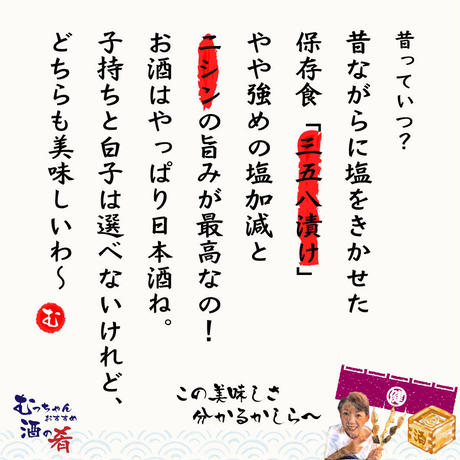 昔っていつ?
昔ながらに塩をきかせた
保存食「三五八漬け」
やや強めの塩加減と
ニシンの旨みが最高なの!
お酒はやっぱり日本酒ね。
子持ちと白子は選べないけれど、
どちらも美味しいわ〜
む
この美味しさ
分かるかしら〜
むっちゃん
おすすめ
酒の肴
健
酒